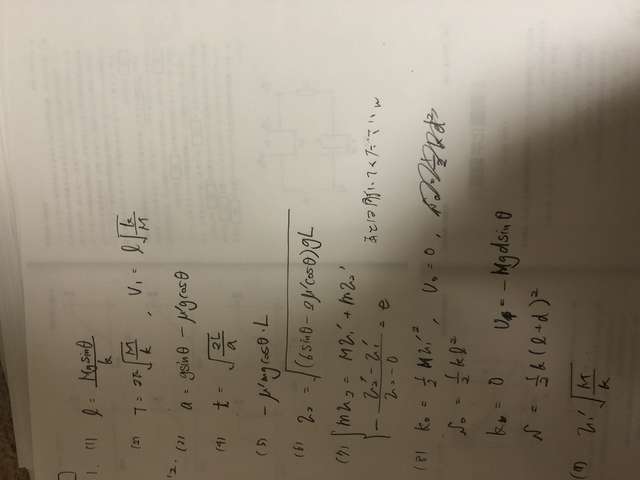 1. (1) l = Mgsinθ/k
(2) T = 2π√(M/k) , V₁ = l√(k/M)
2. (3) a = gsinθ - μ'gcosθ
(4) t = √(2L/a)
(5) -μ'mgcosθ·L
(6) v₂ = √((6sinθ - 2μ'cosθ)gL)
(7) { mv₂ = Mv₁' + mv₂'
- (v₂' - v₁')/(v₂ - 0) = e
(8) K₀ = 1/2 Mv₁'² , U₀ = 0 ,
N₀ = 1/2 kl²
K = 0 U = -Mgdsinθ
N = 1/2 k(l+d)²
(9) v₁'√(M/k)